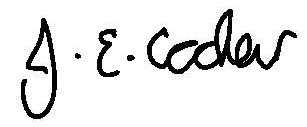 J. E. Coder